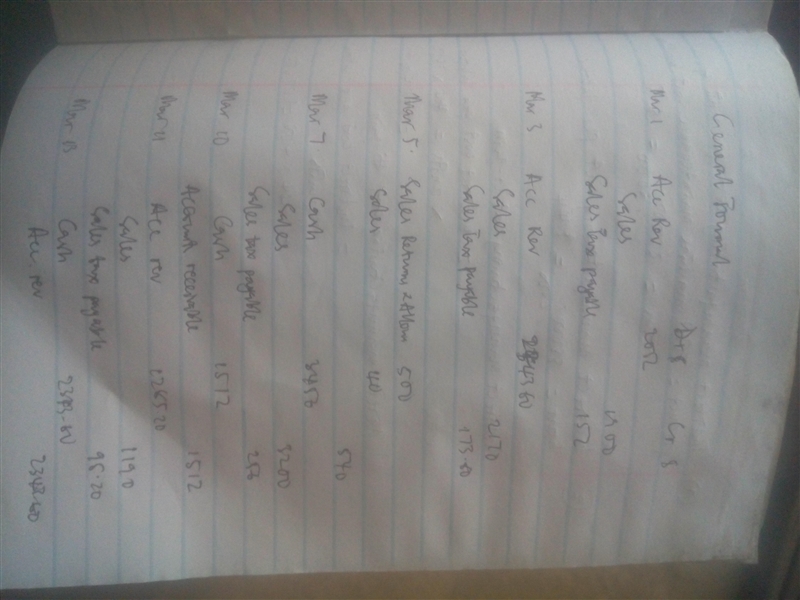 General Journal
Dr $ Cr $
Mar 1 Acc Rev 2052
Sales 1900
Sales tax payable 152
Mar 3 Acc Rev 2343.60
Sales 2170
Sales Tax payable 173.60
Mar 5. Sales Return & Allow 500
Sales 40
540
Mar 7 Cash
Sales 3200
Sales tax payable 256
Mar 10 Cash 1512
Account receivable 1512
Mar 11 Acc rev
Sales 1190
Sales tax payable 95.20
Mar 13 Cash
Acc rev